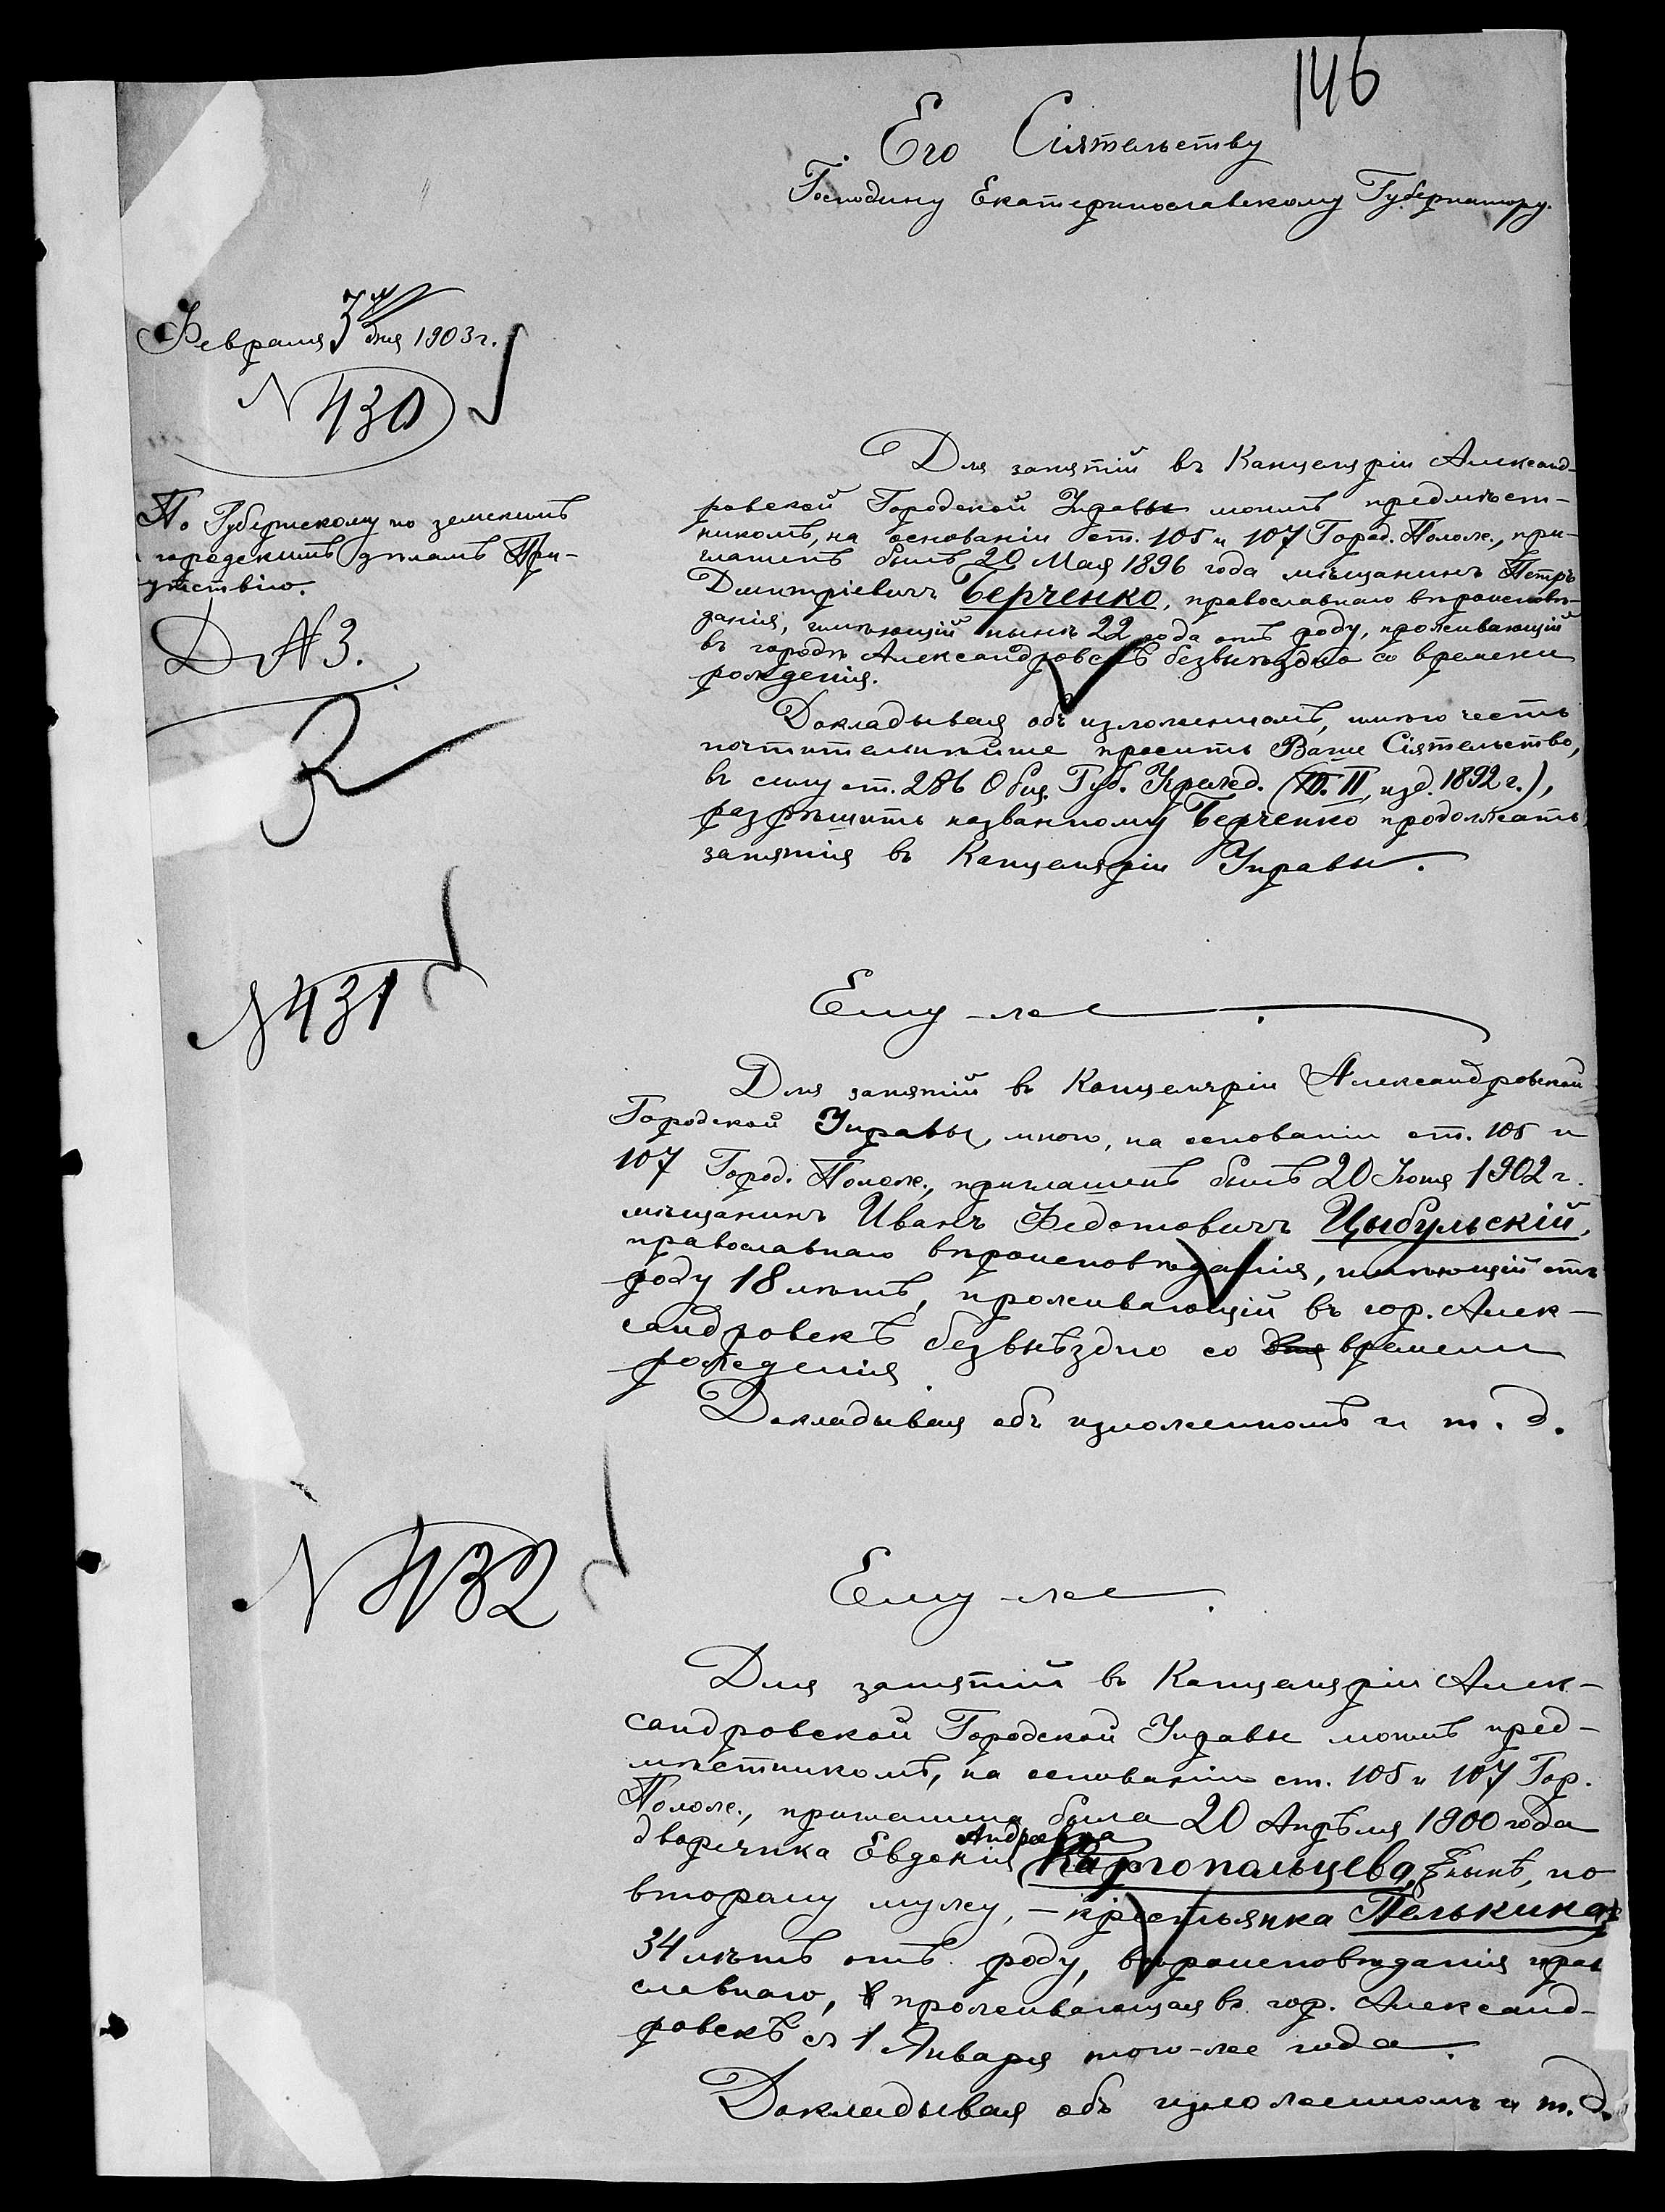 146
Его Сіятельству
Господину Екатеринославскому Губернатору.
Февраля 3 дня 1903 г.
N 430
По Губернскому по земскимъ
городскимъ дѣламъ При-
утствію.
Д N 3.
Для занятій въ Канцеляріи Александ-
ровской Городской Управы моимъ предмѣст-
никомъ, на основаніи ст. 105 и 107 Город. Полож., при-
глашенъ былъ 20 Мая 1896 года мѣщанинъ Петръ
Дмитріевичъ Берченко, православнаго вѣроисповѣ-
данія, имѣющій нынѣ 22 года отъ роду, проживающій
въ городѣ Александровскѣ безвыѣздно со времени
рожденія.
Докладывая объ изложенномъ, имѣю честь
почтительнѣйше просить Ваше Сіятельство,
въ силу ст. 286 Общ. Губ. Учрежд. (т. II, изд. 1892 г.),
разрѣшить названному Берченко продолжать
занятія въ Канцеляріи Управы.
N 431
Ему-же.
Для занятій въ Канцеляріи Александровской
Городской Управы, мною, на основаніи ст. 105 и
107 Город. Полож., приглашенъ былъ 20 Іюня 1902 г.
мѣщанинъ Иванъ Федотовичъ Цыбульскій,
православнаго вѣроисповѣданія, имѣющій отъ
роду 18 лѣтъ, проживающій въ гор. Алек-
сандровскѣ безвыѣздно со дня времени
рожденія.
Докладывая объ изложенномъ и т. д.
N 432
Ему-же.
Для занятій въ Канцеляріи Алек-
сандровской Городской Управы моимъ пред-
мѣстникомъ, на основаніи ст. 105 и 107 Гор.
Полож., приглашена была 20 Апрѣля 1900 года
Андреевна
дворянка Евдокія Каргопольцева, нынѣ, по
второму мужу, – крестьянка Пелькина,
34 лѣтъ отъ роду, вѣроисповѣданія прав
славнаго, проживающая въ гор. Александ-
ровскѣ съ 1 Января того-же года.
Докладывая объ изложенномъ и т. д.